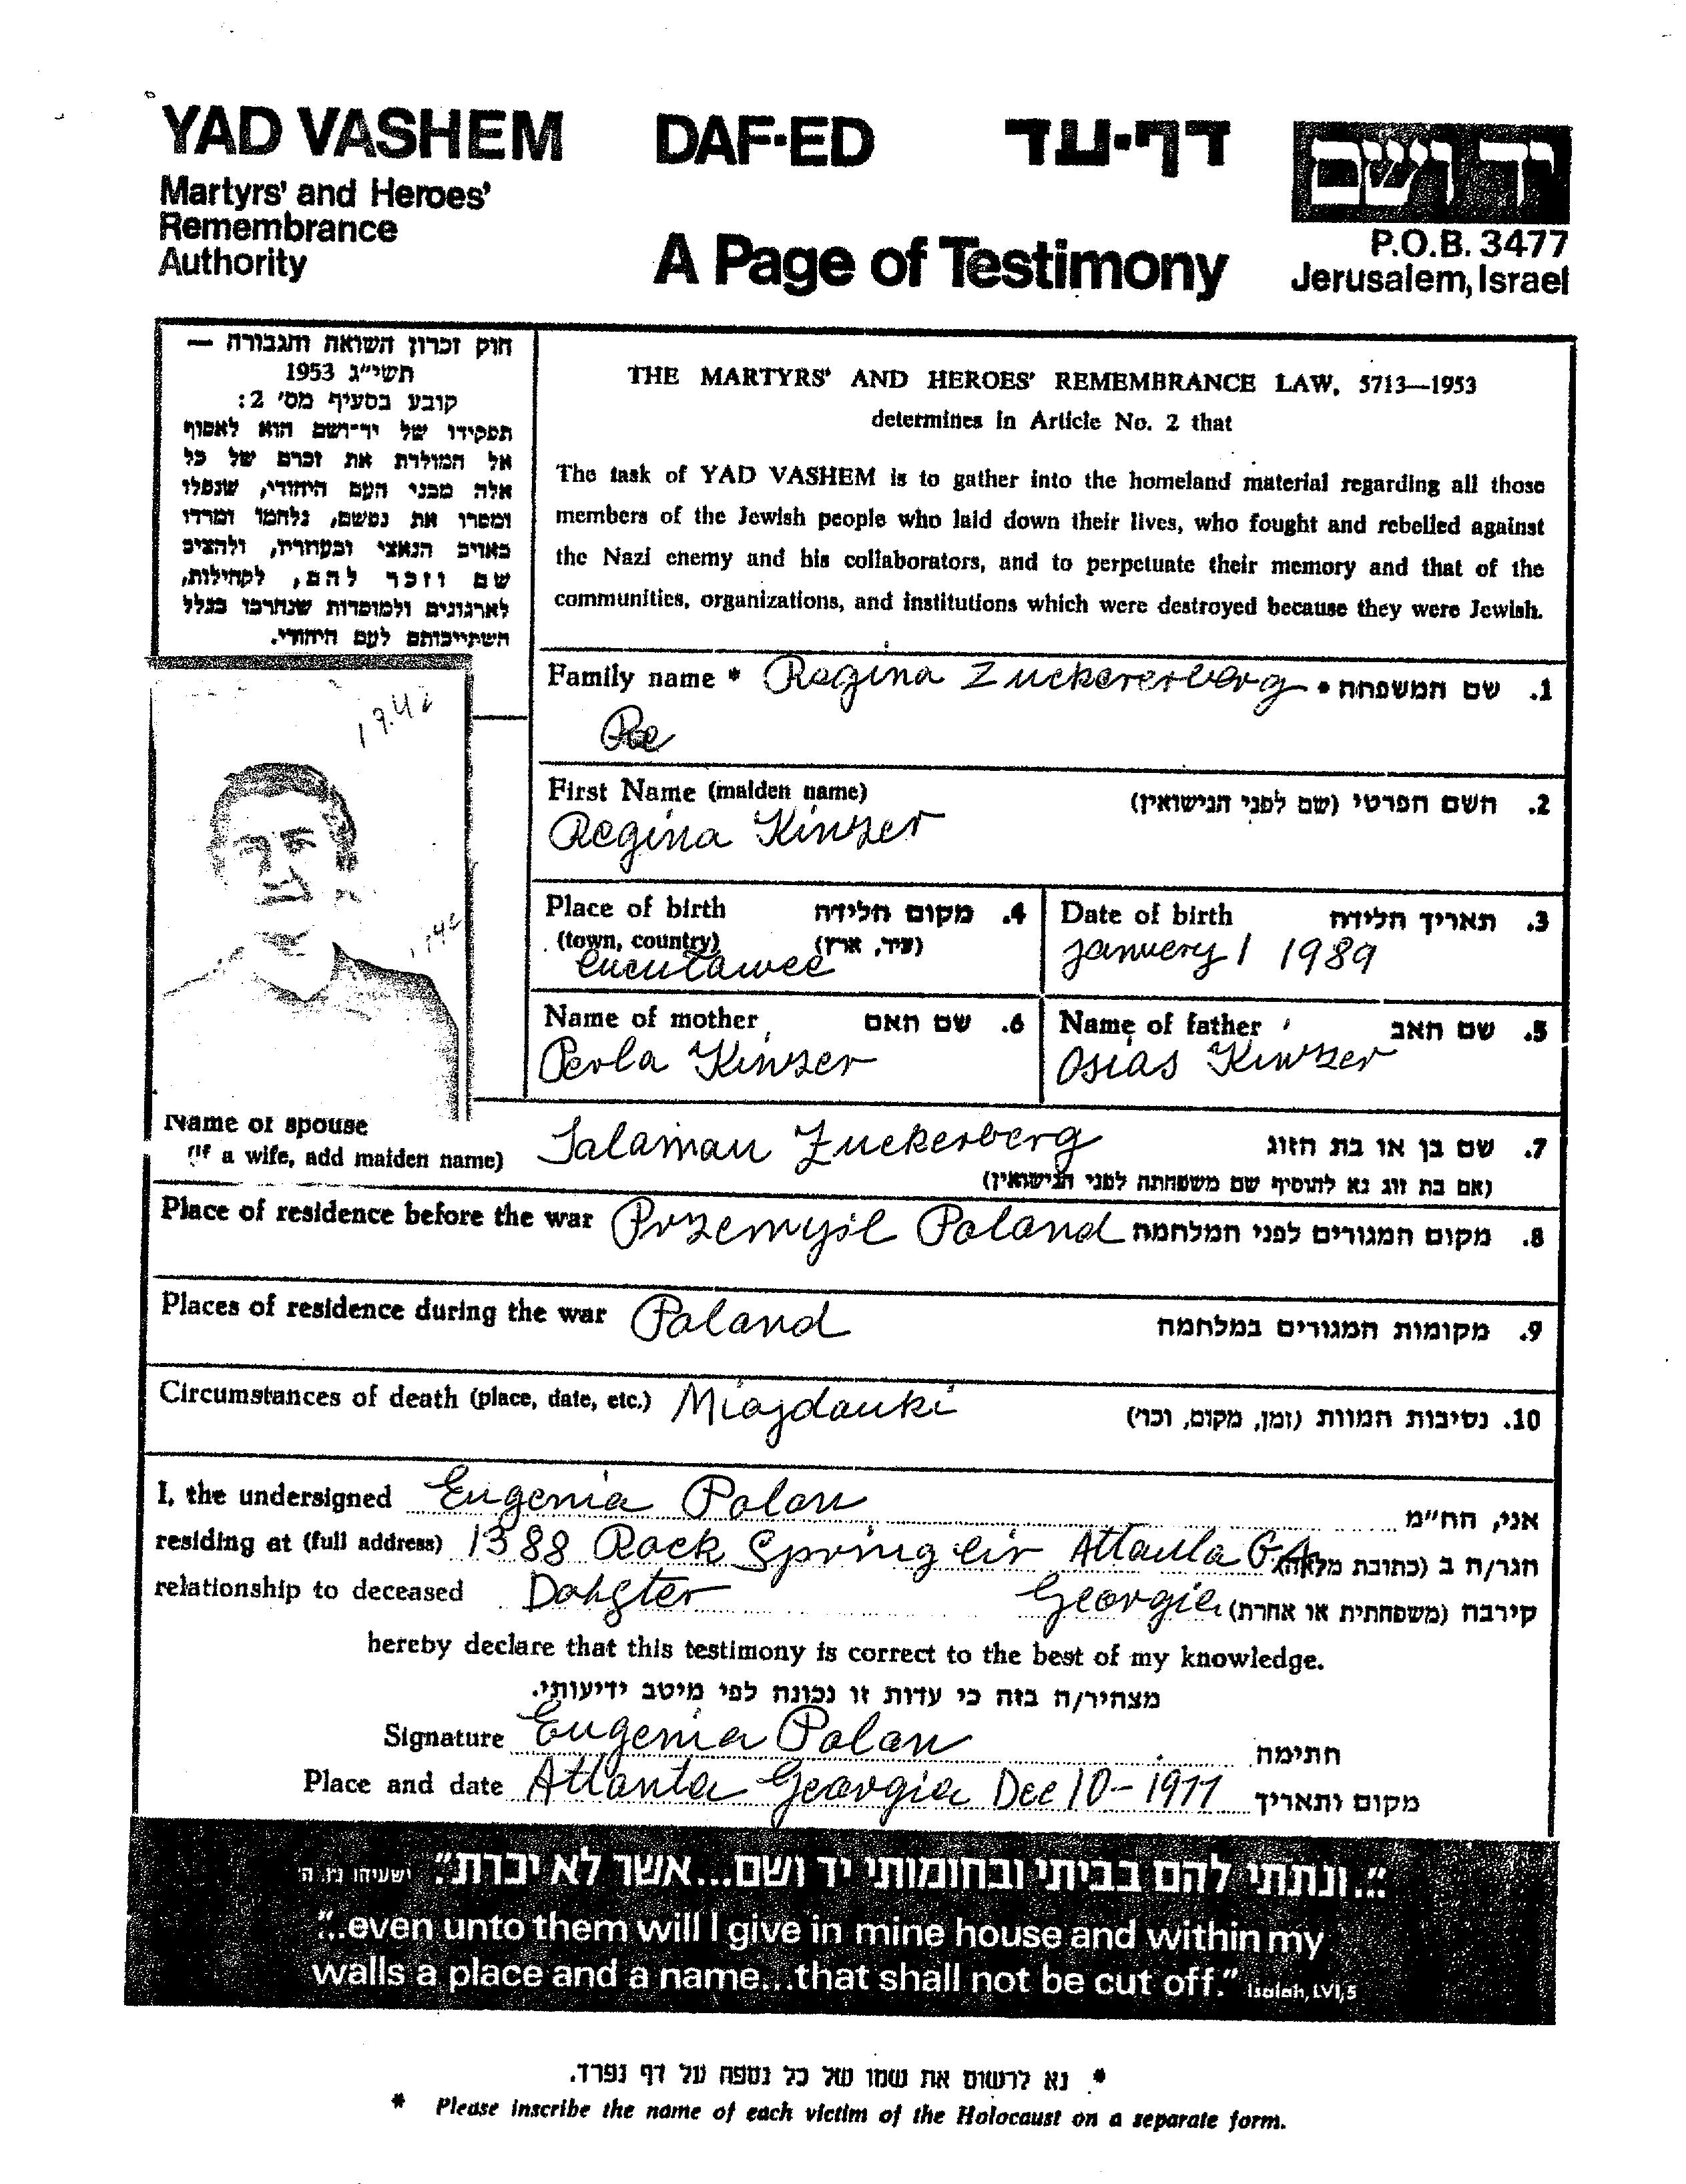 YAD VASHEM DAF-ED דף-עד ידושם
Martyrs' and Heroes'
Remembrance
Authority
A Page of Testimony
P.O.B. 3477
Jerusalem, Israel
חוק זכרון השואה והגבורה —
תשי"ג 1953
קובע בסעיף מס' 2:
תפקידו של יד-ושם הוא לאסוף
אל המולדת את זכרם של כל
אלה מבני העם היהודי, שנפלו
ומסרו את נפשם, נלחמו ומרדו
באויב הנאצי ובעוזריו, ולהציב
שם וזכר להם, לקהילות,
לארגונים ולמוסדות שנחרבו בגלל
השתייכותם לעם היהודי.
THE MARTYRS' AND HEROES' REMEMBRANCE LAW, 5713—1953
determines in Article No. 2 that
The task of YAD VASHEM is to gather into the homeland material regarding all those
members of the Jewish people who laid down their lives, who fought and rebelled against
the Nazi enemy and his collaborators, and to perpetuate their memory and that of the
communities, organizations, and institutions which were destroyed because they were Jewish.
Family name * Regina Zuckererberg 1. שם המשפחה *
First Name (maiden name) 2. השם הפרטי (שם לפני הנישואין)
Regina Kinzer
Place of birth 4. מקום הלידה
(town, country) (עיר, ארץ)
Date of birth 3. תאריך הלידה
January 1 1989
Name of mother 6. שם האם
Perla Kinzer
Name of father 5. שם האב
Osias Kinzer
Name of spouse
(if a wife, add maiden name) Salaman Zuckerberg 7. שם בן או בת הזוג
(אם בת זוג נא להוסיף שם משפחתה לפני הנישואין)
Place of residence before the war Przemysil Poland 8. מקום המגורים לפני המלחמה
Places of residence during the war Poland 9. מקומות המגורים במלחמה
Circumstances of death (place, date, etc.) Miajdanki 10. נסיבות המוות (זמן, מקום, וכו')
I, the undersigned Eugenia Polan אני, הח"מ
residing at (full address) 1388 Rock Spring cir Attanla GA הגר/ה ב (כתובת מלאה)
relationship to deceased Dohgter Georgia קירבה (משפחתית או אחרת)
hereby declare that this testimony is correct to the best of my knowledge.
מצהיר/ה בזה כי עדות זו נכונה לפי מיטב ידיעותי.
Signature Eugenia Polan חתימה
Place and date Atlanta Georgia Dec 10-1977 מקום ותאריך
"...ונתתי להם בביתי ובחומותי יד ושם...אשר לא יכרת." ישעיהו נו, ה
"...even unto them will I give in mine house and within my
walls a place and a name...that shall not be cut off." Isaiah, LVI, 5
* נא לרשום את שמו של כל נספה על דף נפרד.
* Please inscribe the name of each victim of the Holocaust on a separate form.